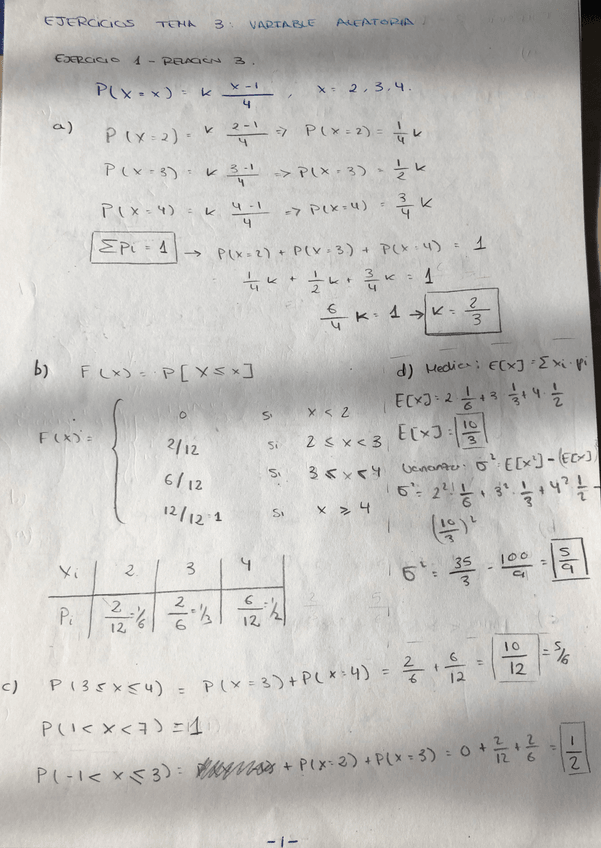 EJERCICIOS TEMA 3: VARIABLE ALEATORIA.
EJERCICIO 1 - RELACION 3.
P(X=x) = k (x-1)/4 , x = 2, 3, 4.
a) P(X=2) = k (2-1)/4 => P(X=2) = 1/4 k
P(X=3) = k (3-1)/4 => P(X=3) = 1/2 k
P(X=4) = k (4-1)/4 => P(X=4) = 3/4 k
ΣPi = 1 → P(X=2) + P(X=3) + P(X=4) = 1
1/4 k + 1/2 k + 3/4 k = 1
6/4 k = 1 → k = 2/3
b) F(x) = P[X≤x]
F(x) = { 0 si x < 2
2/12 si 2 ≤ x < 3
6/12 si 3 ≤ x < 4
12/12=1 si x ≥ 4
Xi | 2 | 3 | 4
Pi | 2/12=1/6 | 2/6=1/3 | 6/12=1/2
d) Media: E[X] = Σxi·pi
E[X] = 2·1/6 + 3·1/3 + 4·1/2
E[X] = 10/3
Varianza: σ² = E[X²] - (E[X]
σ² = 2²·1/6 + 3²·1/3 + 4²·1/2 -
(10/3)²
σ² = 35/3 - 100/9 = 5/9
c) P(3≤x≤4) = P(X=3) + P(X=4) = 2/6 + 6/12 = 10/12 = 5/6
P(1<x<7) = 1
P(-1<x≤3) = + P(X=2) + P(X=3) = 0 + 2/12 + 2/6 = 1/2
-1-